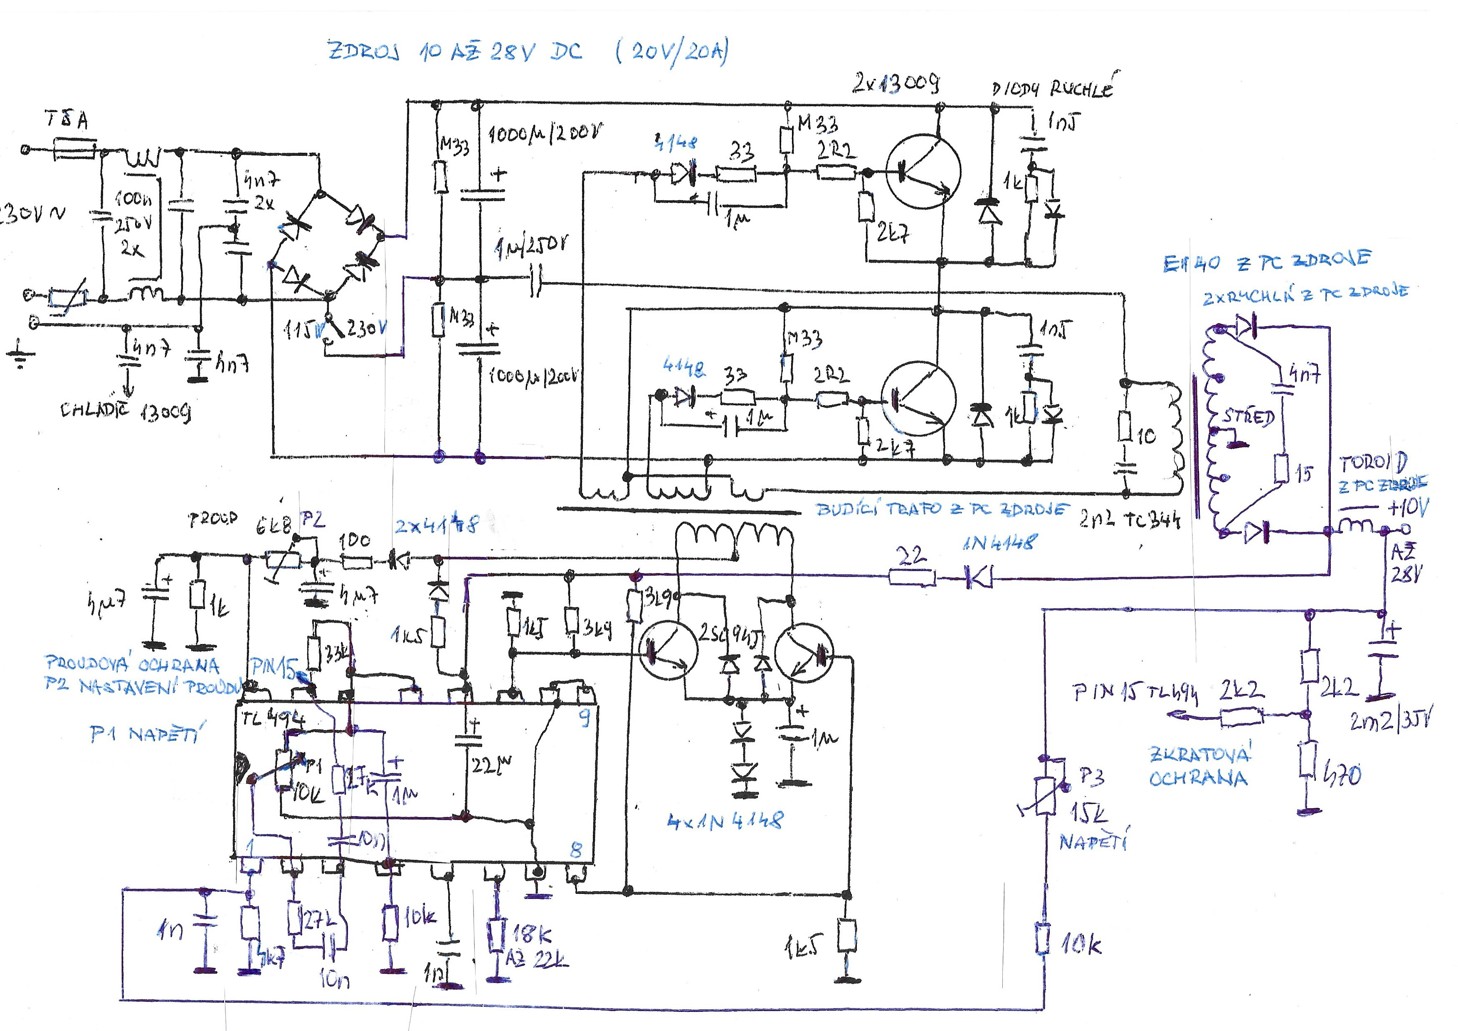 ZDROJ 10 AŽ 28V DC (20V/20A)
2x13009
DIODY RUCHLÉ
T5A
230V~
100n
250V
2x
4n7
2x
115V
230V
4n7
4n7
CHLADIČ 13009
M33
1000M/200V
1M/250V
M33
1000M/200V
4148
33
1M
M33
2R2
2k7
1n5
1k
4148
33
1M
M33
2R2
2k7
1n5
1k
10
2n2 TC344
EI40 Z PC ZDROJE
2xRYCHLÁ Z PC ZDROJE
4n7
STŘED
15
TOROID
Z PC ZDROJE
+10V
AŽ
28V
BUDÍCÍ TRAFO Z PC ZDROJE
PROUD
6k8
P2
100
2x4148
4M7
1k
4M7
1k5
1k5
3k9
3k9
22
1N4148
PROUDOVÁ OCHRANA
P2 NASTAVENÍ PROUDU
PIN15
33k
P1 NAPĚTÍ
TL494
9
P1
10k
27k
1M
22M
10n
1
8
2SC945
1M
4x1N4148
1n
4k7
27k
10n
10k
1n
18k
AŽ 22k
1k5
PIN 15 TL494
2k2
2k2
2m2/35V
ZKRATOVÁ
OCHRANA
470
P3
15k
NAPĚTÍ
10k